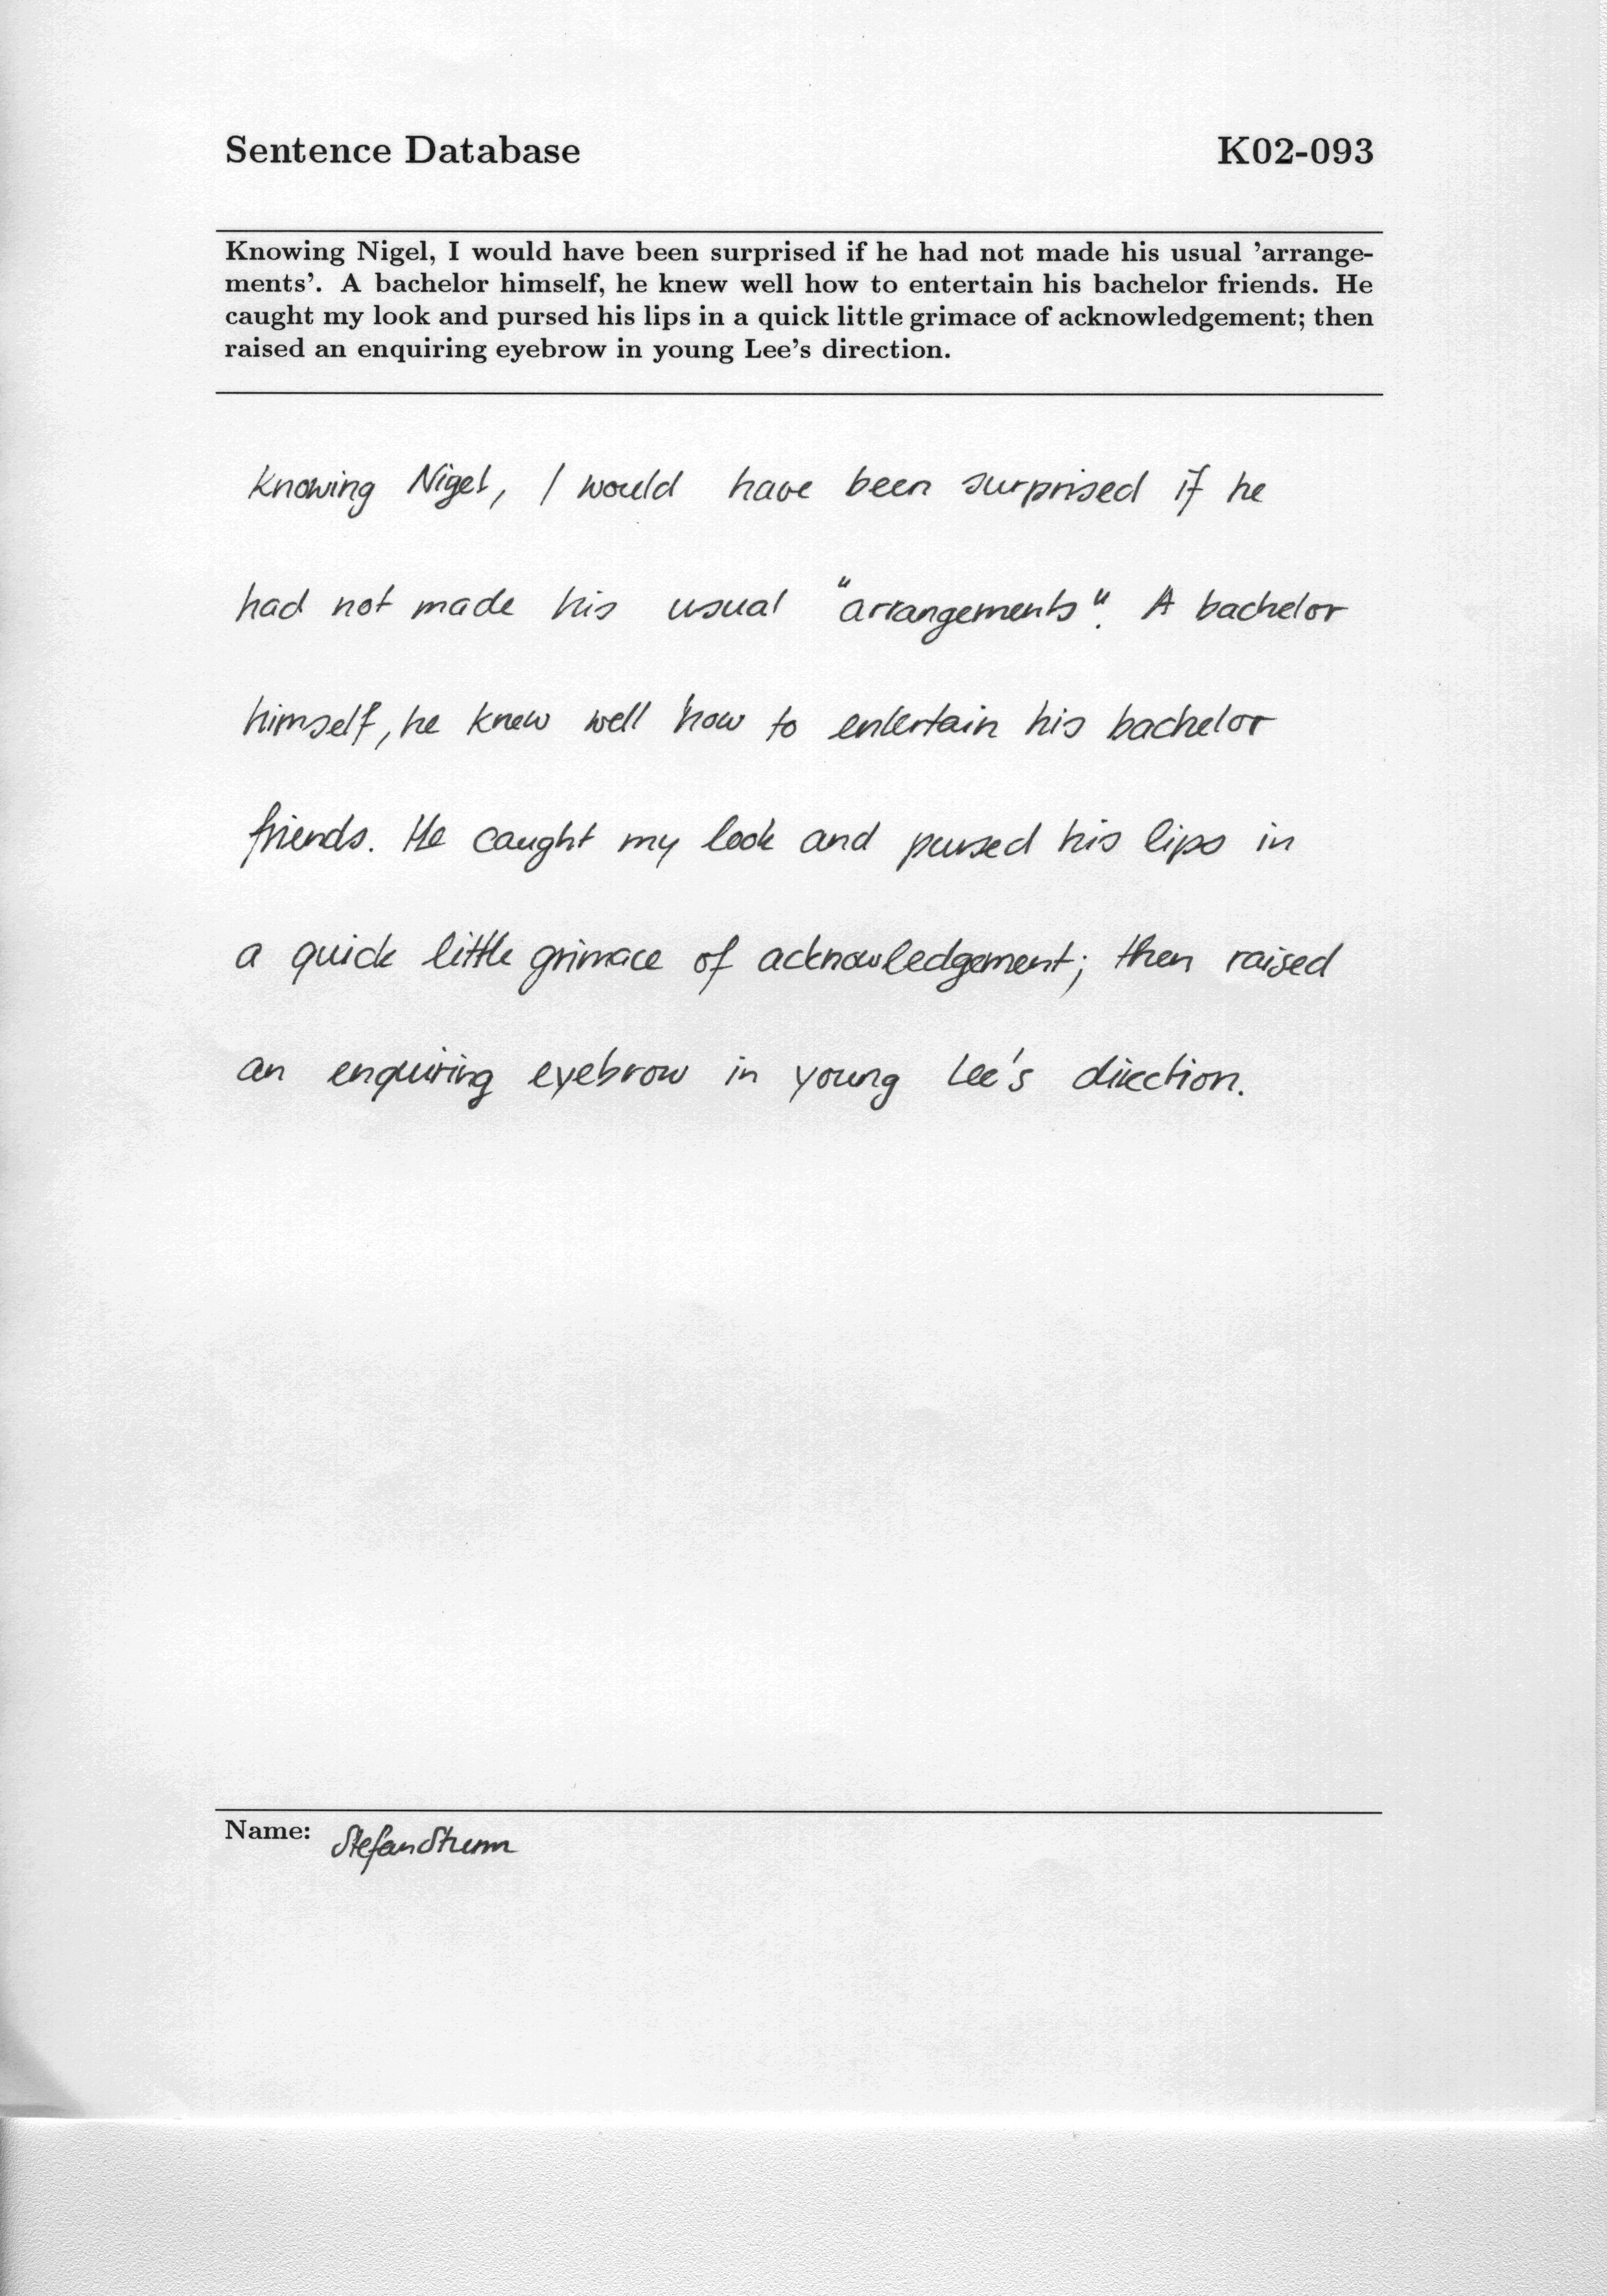 Sentence Database K02-093
Knowing Nigel, I would have been surprised if he had not made his usual 'arrange-
ments'. A bachelor himself, he knew well how to entertain his bachelor friends. He
caught my look and pursed his lips in a quick little grimace of acknowledgement; then
raised an enquiring eyebrow in young Lee's direction.
Knowing Nigel, I would have been surprised if he
had not made his usual "arrangements". A bachelor
himself, he knew well how to entertain his bachelor
friends. He caught my look and pursed his lips in
a quick little grimace of acknowledgement; then raised
an enquiring eyebrow in young Lee's direction.
Name: Stefan